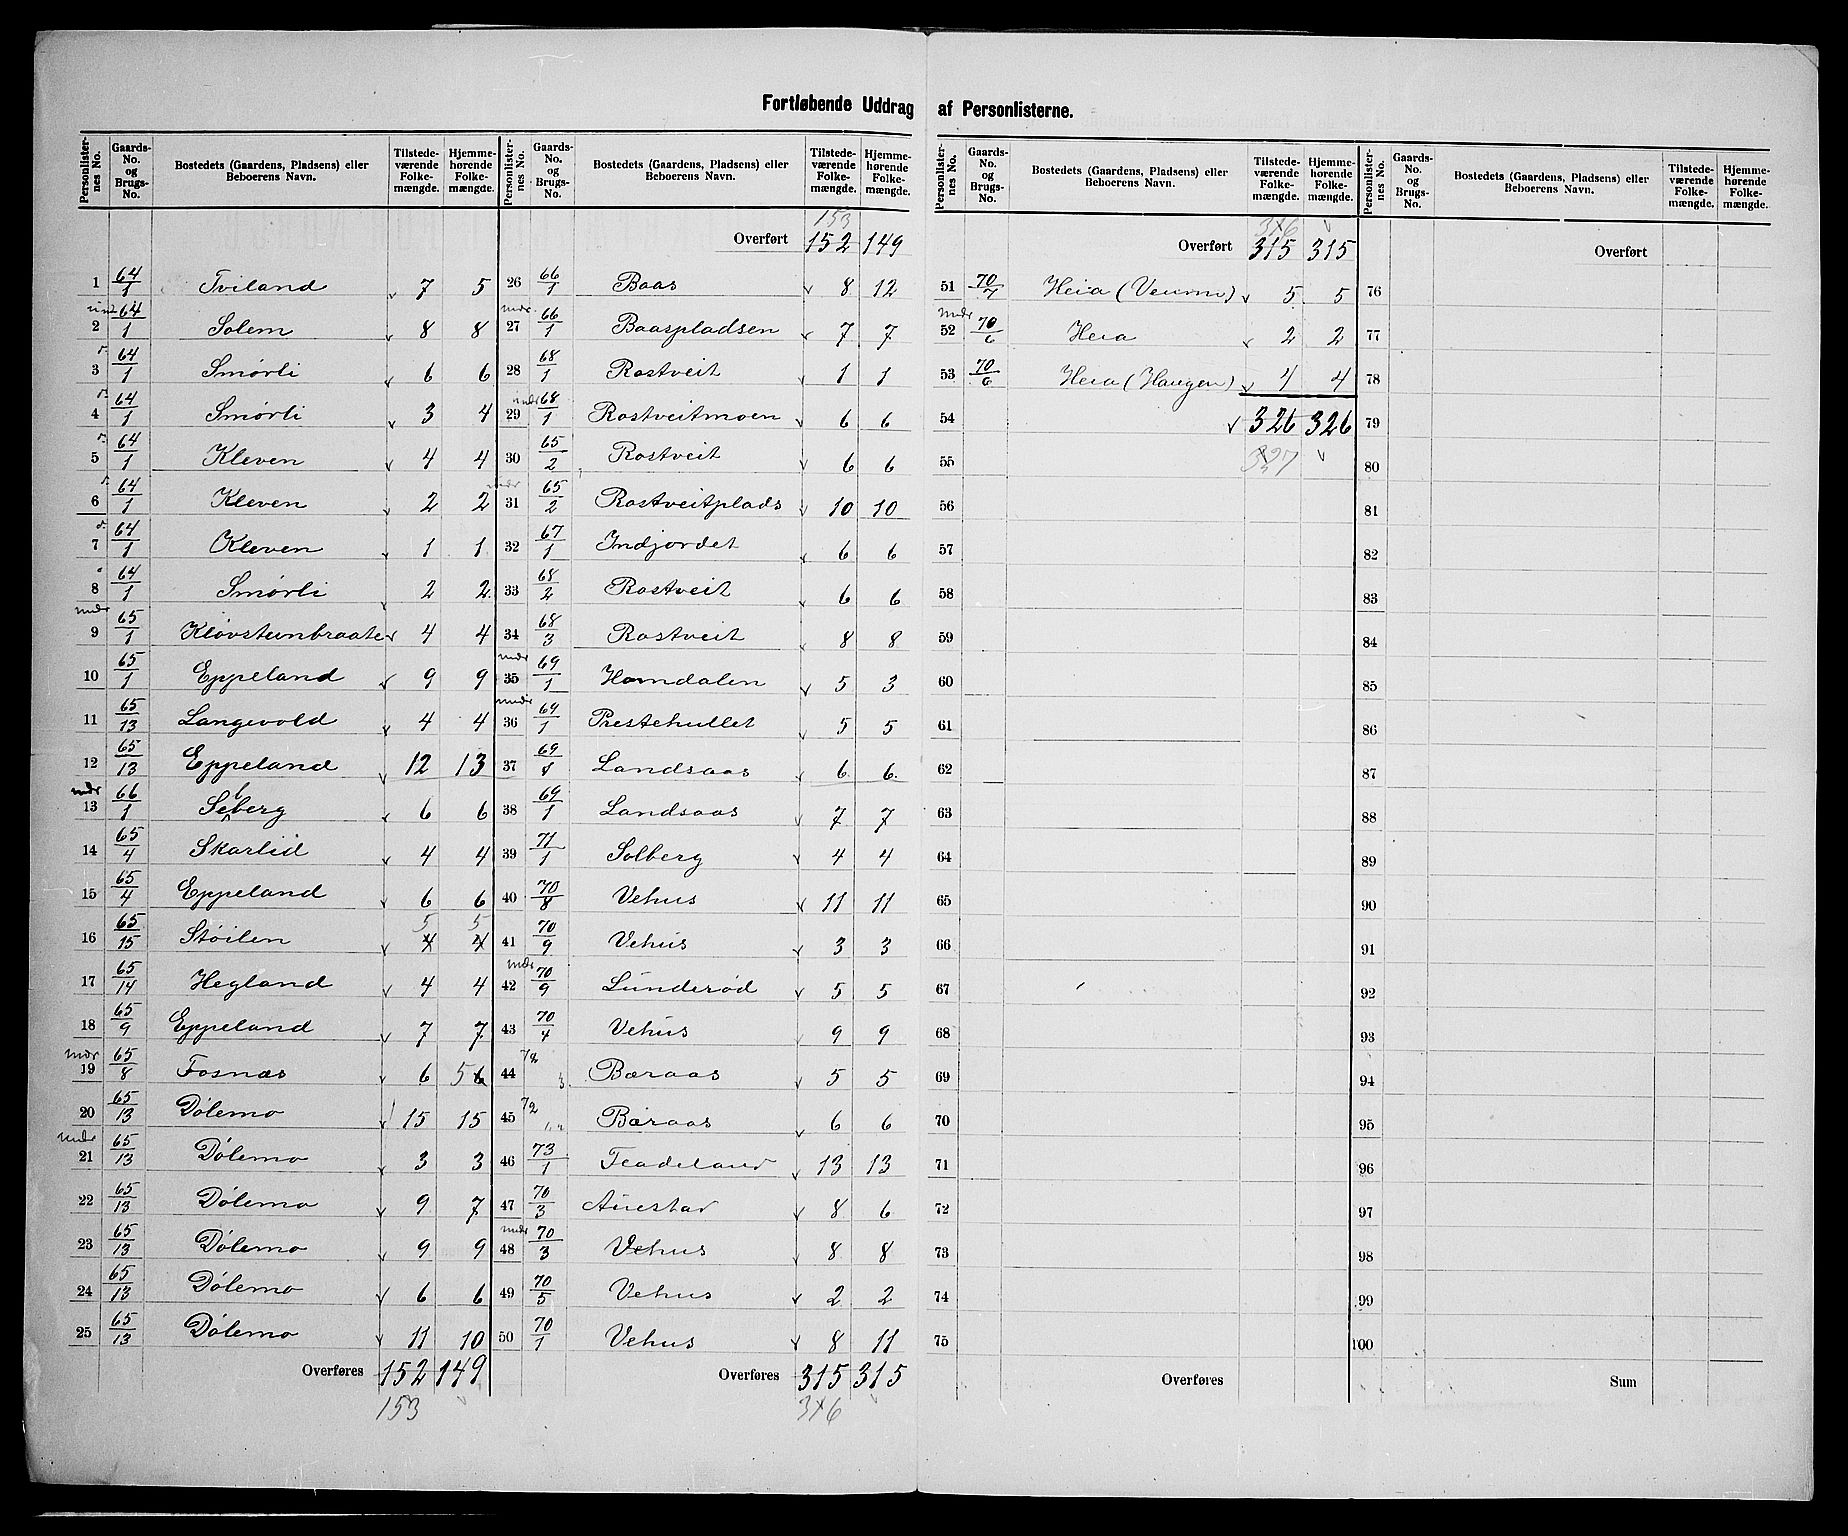 Fortløbende Uddrag af Personlisterne.
Personlister-nes No. | Gaards-No. og Brugs-No. | Bostedets (Gaardens, Pladsens) eller Beboerens Navn. | Tilstede-værende Folke-mængde. | Hjemme-hørende Folke-mængde.
1 64/1 Tviland 7 5
2 64/1 Solem 8 8
3 64/1 Smørli 6 6
4 64/1 Smørli 3 4
5 64/1 Kleven 4 4
6 64/1 Kleven 2 2
7 64/1 Kleven 1 1
8 64/1 Smørli 2 2
mdr
9 65/1 Kløvsteinbraate 4 4
10 65/1 Eppeland 9 9
11 65/13 Langevold 4 4
12 65/13 Eppeland 12 13
mdr
13 66/1 Seberg 6 6
14 65/4 Skarlid 4 4
15 65/4 Eppeland 6 6
5 5
16 65/15 Støilen 4 4
17 65/14 Hegland 4 4
18 65/9 Eppeland 7 7
mdr
19 65/8 Fosnæs 6 5 6
20 65/13 Dølemo 15 15
mdr
21 65/13 Dølemo 3 3
22 65/13 Dølemo 9 7
23 65/13 Dølemo 9 9
24 65/13 Dølemo 6 6
25 65/13 Dølemo 11 10
Overføres 152 149
153
Personlister-nes No. | Gaards-No. og Brugs-No. | Bostedets (Gaardens, Pladsens) eller Beboerens Navn. | Tilstede-værende Folke-mængde. | Hjemme-hørende Folke-mængde.
153
Overført 152 149
26 66/1 Baas 8 12
mdr
27 66/1 Baaspladsen 7 7
28 68/1 Rostveit 1 1
mdr
29 68/1 Rostveitmoen 6 6
30 65/2 Rostveit 6 6
mdr
31 65/2 Rostveitplads 10 10
32 67/1 Indjordet 6 6
33 68/2 Rostveit 6 6
34 68/3 Rostveit 8 8
mdr
35 69/1 Homdalen 5 3
mdr
36 69/1 Prestehullet 5 5
37 69/1 Landsaas 6 6
38 69/1 Landsaas 7 7
39 71/1 Solberg 4 4
40 70/8 Vehus 11 11
41 70/9 Vehus 3 3
mdr
42 70/9 Lunderød 5 5
43 70/4 Vehus 9 9
44 72 Bæraas 5 5
45 72 Bæraas 6 6
46 73/1 13 13
47 70/3 Auestad 8 6
mdr
48 70/3 Vehus 8 8
49 70/5 Vehus 2 2
50 70/1 Vehus 8 11
Overføres 315 315
316
Personlister-nes No. | Gaards-No. og Brugs-No. | Bostedets (Gaardens, Pladsens) eller Beboerens Navn. | Tilstede-værende Folke-mængde. | Hjemme-hørende Folke-mængde.
316
Overført 315 315
51 70/7 Heia 5 5
mdr
52 70/6 Heia 2 2
53 70/6 Heia (Haugen) 4 4
54 326 326
55 327
56
57
58
59
60
61
62
63
64
65
66
67
68
69
70
71
72
73
74
75
Overføres
Personlister-nes No. | Gaards-No. og Brugs-No. | Bostedets (Gaardens, Pladsens) eller Beboerens Navn. | Tilstede-værende Folke-mængde. | Hjemme-hørende Folke-mængde.
Overført
76
77
78
79
80
81
82
83
84
85
86
87
88
89
90
91
92
93
94
95
96
97
98
99
100
Sum